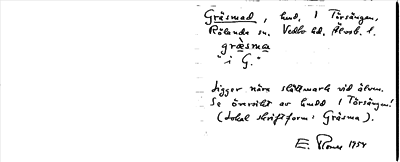 Gräsmad, hmd, i Törsången,
Rölanda sn. Vedbo hd, Älvsb. l.
gräsma
"i G."
Ligger nära slåttmark vid älven.
Se översikt av hmdd i Törsången!
(lokal skriftform: Gräsma).
E. 1954